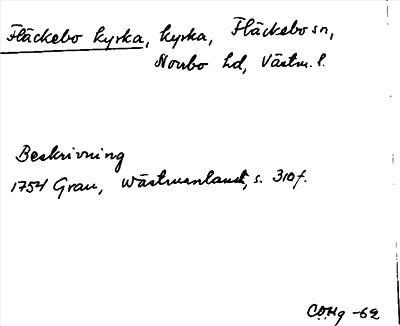 Fläckebo kyrka, kyrka, Fläckebo sn,
Norrbo hd, Västm. l.
Beskrivning
1754 Grau, Wästmanland, s. 310 f.
CÖHg -62